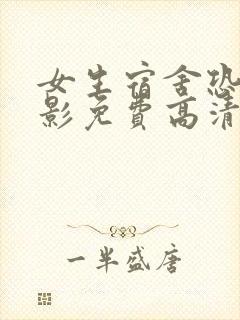 女生宿舍恐
影免费高清
一半盛唐